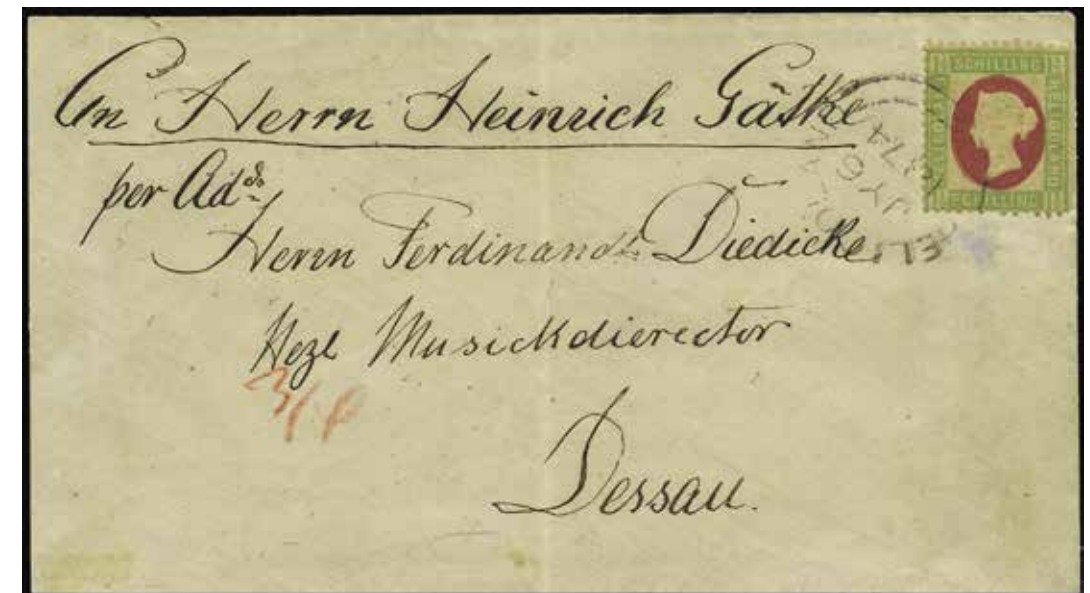 An Herrn Heinrich Gätke
per Adr.
Herrn Ferdinand Diedicke
Hezl Musickdierector
3/
Dessau.
SCHILLING
HELIGOLAND
SCHILLING
JY 6